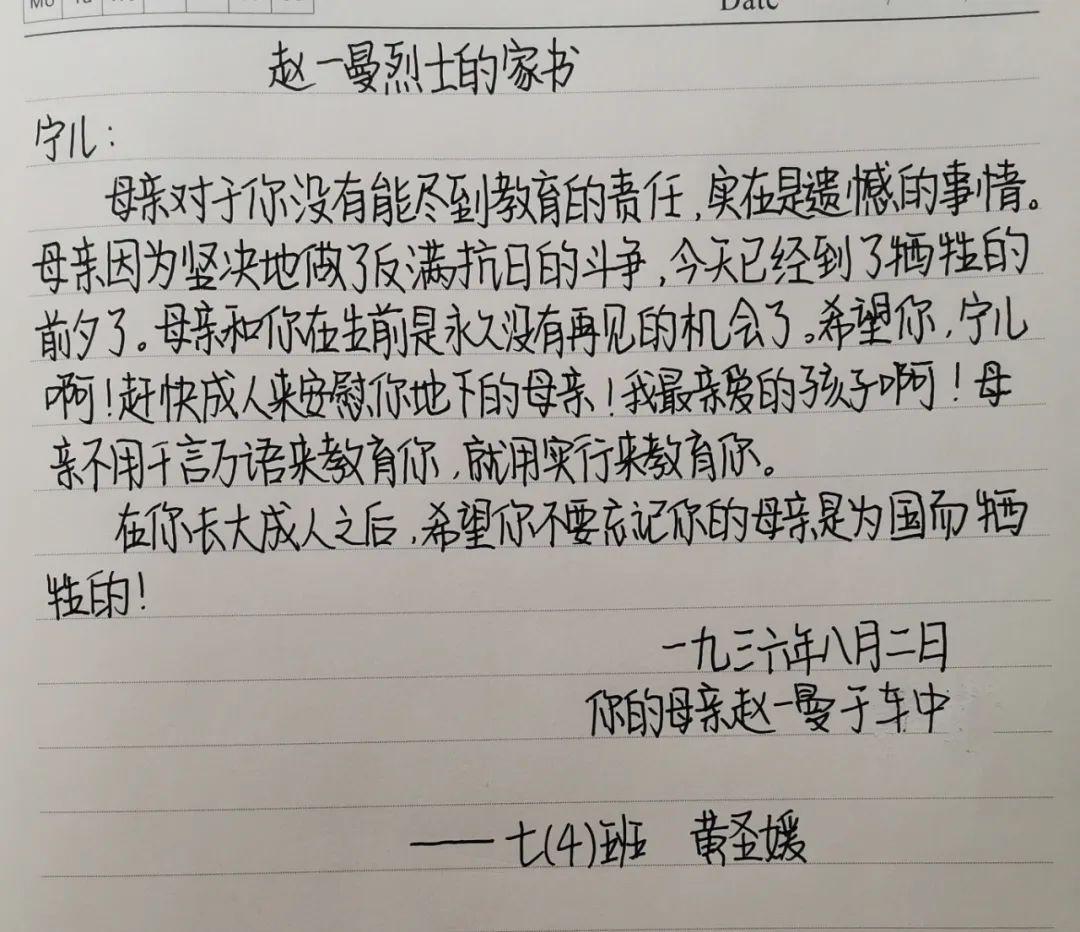 Date
赵一曼烈士的家书
宁儿：
母亲对于你没有能尽到教育的责任，实在是遗憾的事情。
母亲因为坚决地做了反满抗日的斗争，今天已经到了牺牲的
前夕了。母亲和你在生前是永久没有再见的机会了。希望你，宁儿
啊！赶快成人来安慰你地下的母亲！我最亲爱的孩子啊！母
亲不用千言万语来教育你，就用实行来教育你。
在你长大成人之后，希望你不要忘记你的母亲是为国而牺
牲的！
一九三六年八月二日
你的母亲赵一曼于车中
——七(4)班 黄圣媛